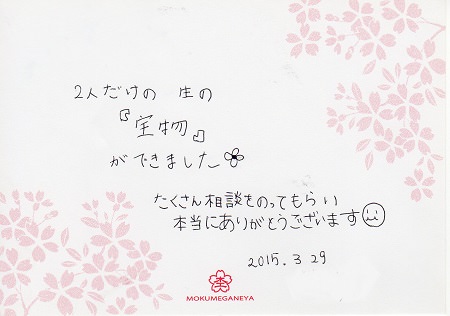 2人だけの 生の
『宝物』
ができました
たくさん相談をのってもらい
本当にありがとうございます
2015.3 29
MOKUMEGANEYA